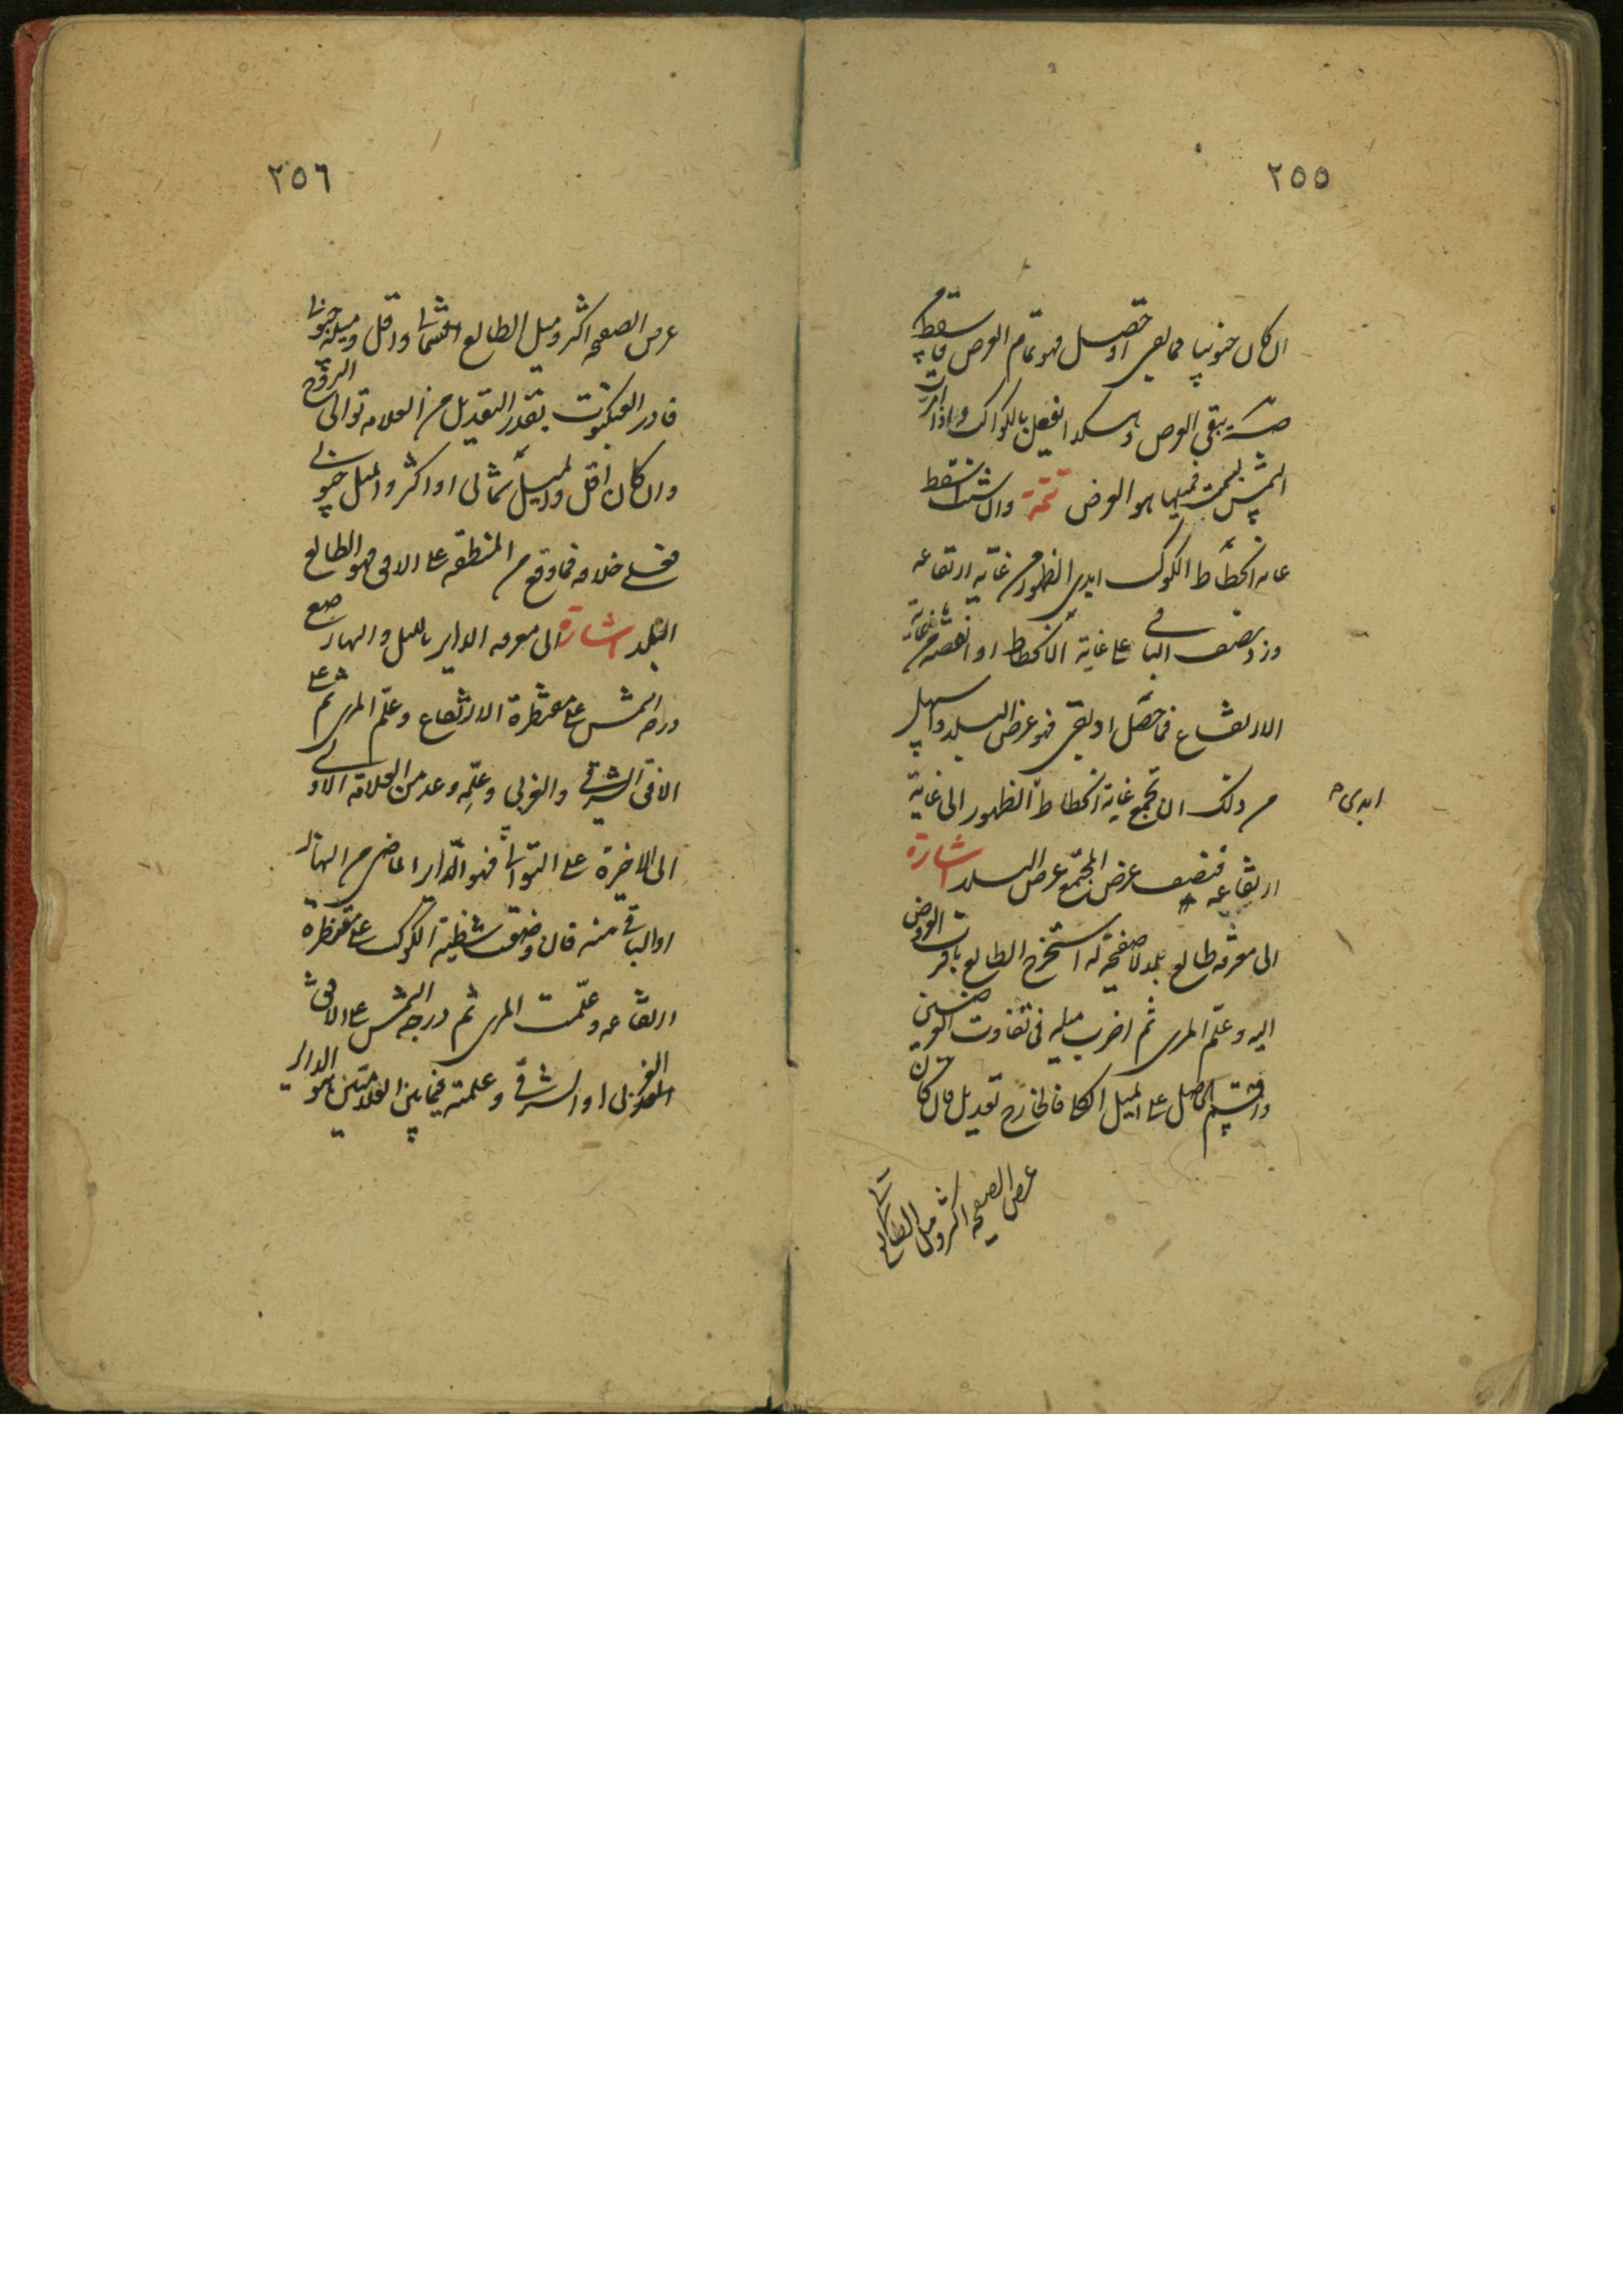 ٢٥٥
ان كان جنوبيا فما بقى او حصل فهو تمام العرض فاسقطه من
ص يبقى العرض وهكذا تفعل بالكواكب واذا مرت
الشمس بالسمت فميلها هو العرض تتمة وان شئت اسقط
غاية انحطاط الكوكب ابدى الظهور من غاية ارتفاعه
وزد نصف الباقى على غاية الانحطاط او انقصه من غاية
الارتفاع فما حصل او بقى فهو عرض البلد واسهل
من ذلك ان تجمع غاية انحطاط الظهور الى غاية
ابدى
ارتفاعه فنصف المجتمع عرض البلد اشارة
الى معرفة طالع بلد لا صفحة له استخرج الطالع باقرب العروض
اليه وعلم المرى ثم اضرب ميله فى تفاوت العرضين
واقسم الحاصل على الميل الكلى فالخارج تعديل فان كان
عرض الصفحة اكثر وميل الطالع
٢٥٦
عرض الصفحة اكثر وميل الطالع شماليا او اقل وميله جنوبيا
فادر العنكبوت بقدر التعديل من العلامة توالى البروج
وان كان اقل والميل شمالى او اكثر والميل جنوبى
فعلى خلافه فما وقع من المنطقة على الافق فهو الطالع
البلد اشارة الى معرفة الداير بالليل والنهار ضع
درجة الشمس على مقنطرة الارتفاع وعلم المرى ثم على
الافق الشرقى والغربى وعلمه وعد من العلامة الاولى
الى الاخيرة على التوالى فهو الداير الماضى من النهار
او الباقى منه فان وضعت شظية الكوكب على مقنطرة
ارتفاعه وعلمت المرى ثم درجة الشمس على الافق
الغربى او الشرقى وعلمته فما بين العلامتين هو الداير